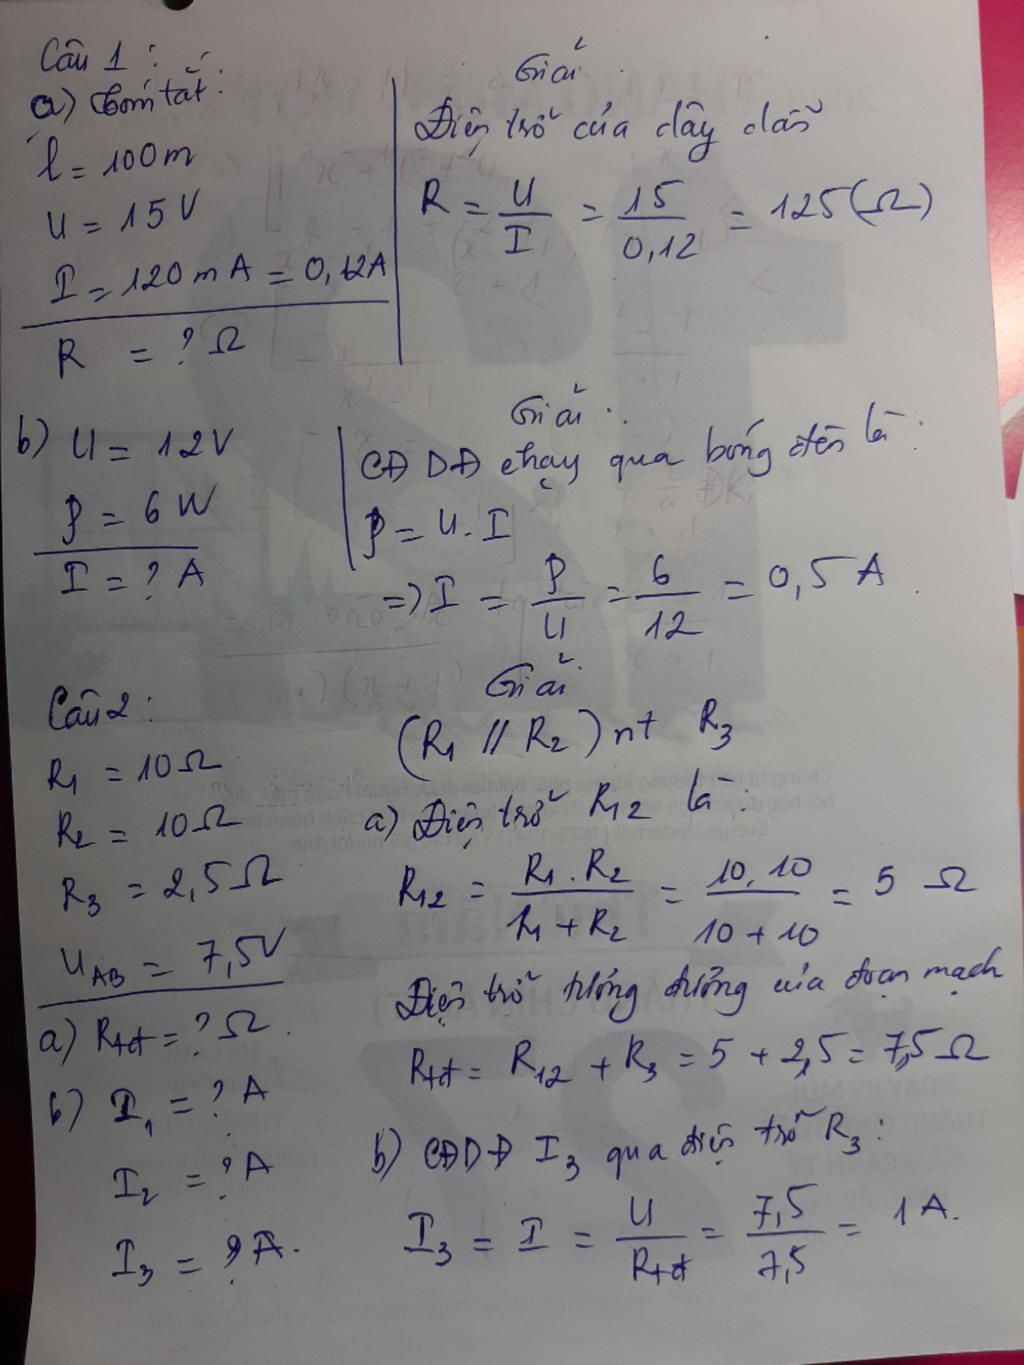 Câu 1 :
a) Tóm tắt :
l = 100m
U = 15 V
I = 120 mA = 0,12A
R = ? Ω
Giải
Điện trở của dây dẫn
R = U/I = 15/0,12 = 125 (Ω)
b) U = 12V
P = 6 W
I = ? A
Giải :
CĐDĐ chạy qua bóng đèn là :
P = U . I
=> I = P/U = 6/12 = 0,5 A
Câu 2 :
R1 = 10 Ω
R2 = 10 Ω
R3 = 2,5 Ω
UAB = 7,5V
a) Rtđ = ? Ω .
b) I1 = ? A
I2 = ? A
I3 = ? A .
Giải
(R1 // R2) nt R3
a) Điện trở R12 là :
R12 = R1 . R2 / R1 + R2 = 10 . 10 / 10 + 10 = 5 Ω
Điện trở tương đương của đoạn mạch
Rtđ = R12 + R3 = 5 + 2,5 = 7,5 Ω
b) CĐDĐ I3 qua điện trở R3 :
I3 = I = U/Rtđ = 7,5/7,5 = 1 A .